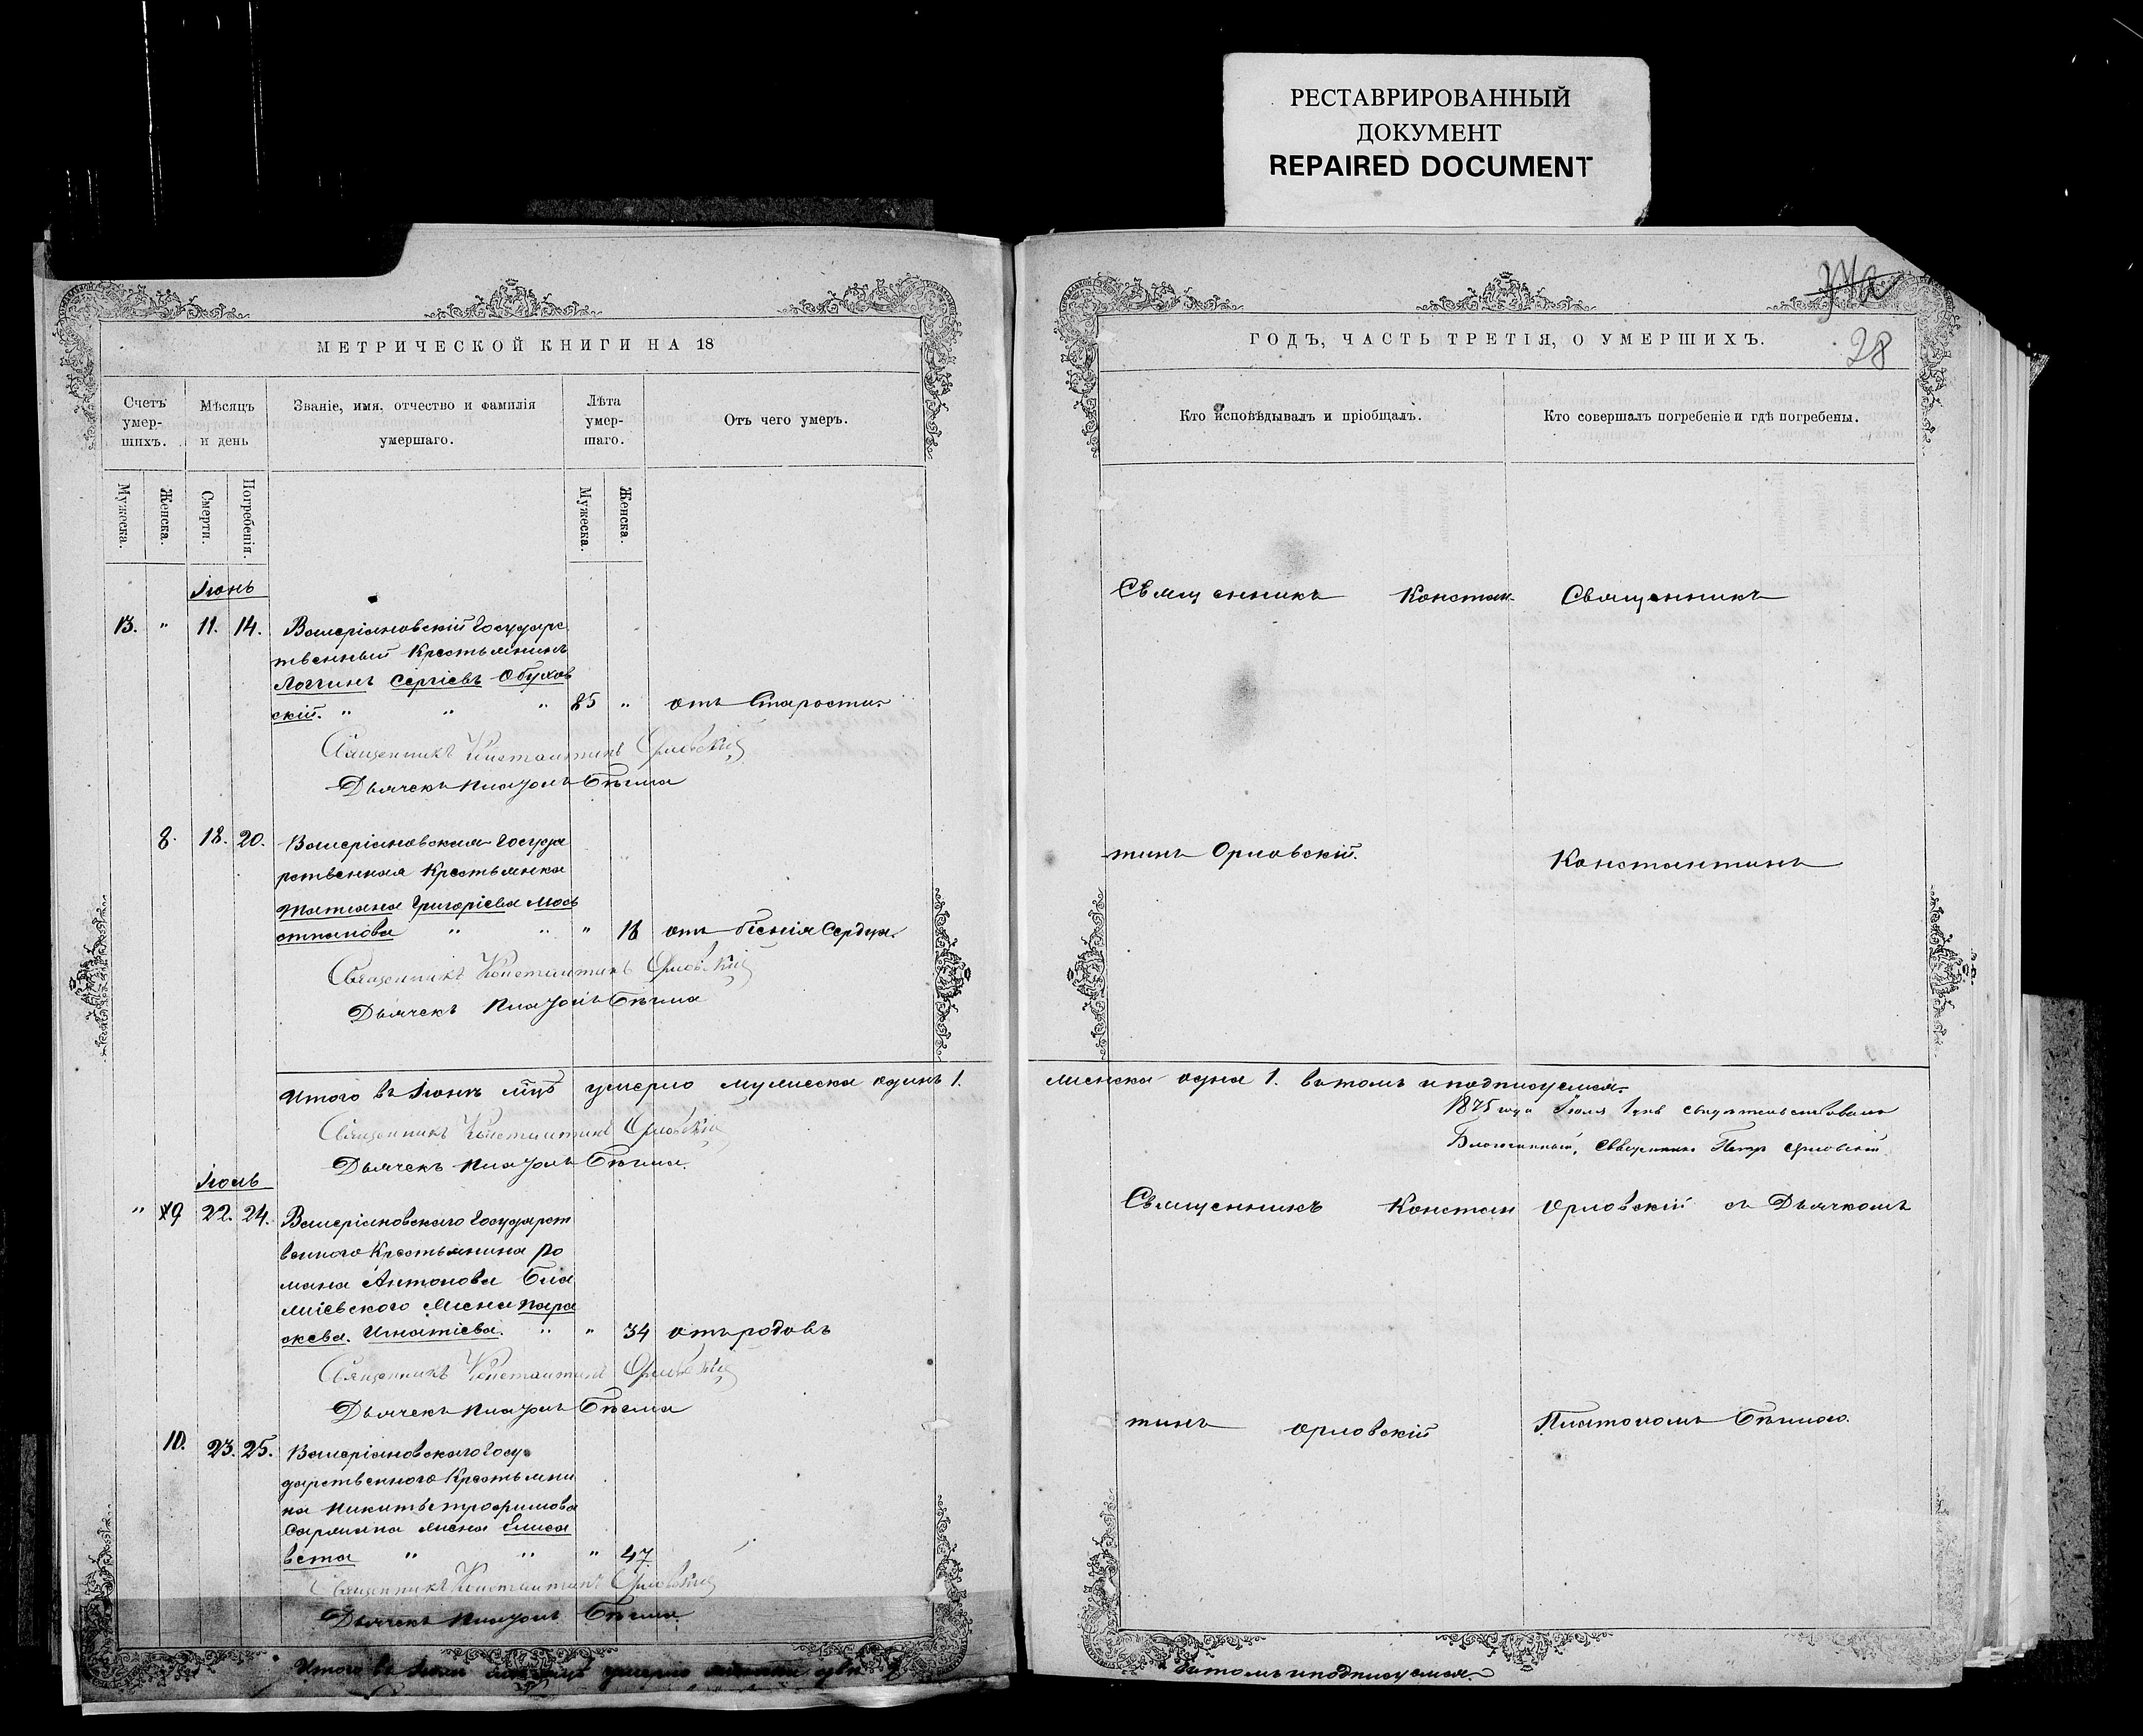 РЕСТАВРИРОВАННЫЙ
ДОКУМЕНТ
REPAIRED DOCUMENT
МЕТРИЧЕСКОЙ КНИГИ НА 18
Счетъ умер-шихъ.
Мѣсяцъ и день
Званіе, имя, отчество и фамилія умершаго.
Лѣта умер-шаго.
Отъ чего умеръ.
Мужеска.
Женска.
Смерти.
Погребенія.
Мужеска.
Женска.
Іюнь
13. " 11. 14. Валеріановскій Государс
твенный Крестьянинъ
Логгинъ Сергіевъ Обухов
скій. " " " 85 " отъ Старости.
Священникъ Константинъ Орловскій
Дьячекъ Платонъ Бѣлма
8. 18. 20. Валеріановская Госуда
рственная Крестьянка
Татіана Григоріева
" " " 18 отъ біенія Сердца.
Священникъ Константинъ Орловскій
Дьячекъ Платонъ Бѣлма
Итого въ Іюнѣ мцѣ умерло мужеска одинъ 1.
Священникъ Константинъ Орловскій
Дьячекъ Платонъ Бѣлма.
Іюль
" 9 22. 24. Валеріановскаго Государст
веннаго Крестьянина Ро
мана Антонова
жена Пара
скева. Игнатіева. " " 34 отъ родовъ
Священникъ Константинъ Орловскій
Дьячекъ Платонъ Бѣлма
10. 23. 25. Валеріановскаго Госу
дарственнаго Крестьяни
на Никиты Трофимова
жена Елиса
вета " " " 47
Священникъ Константинъ Орловскій
Дьячекъ Платонъ Бѣлма.
Итого въ Іюлѣ умерло двѣ 2
28
ГОДЪ, ЧАСТЬ ТРЕТІЯ, О УМЕРШИХЪ.
Кто исповѣдывалъ и пріобщалъ.
Кто совершалъ погребеніе и гдѣ погребены.
Священникъ Констан Священникъ
тинъ Орловскій. Константинъ
женска одна 1. въ томъ и подписуемся.
1875 года Іюля 1 дня свидѣтельствовалъ
Благочинный, Священникъ Петръ Орловскій
Священникъ Констан Орловскій съ Дьячкомъ
тинъ Орловскій Платономъ Бѣлмою.
въ томъ и подписуемся.